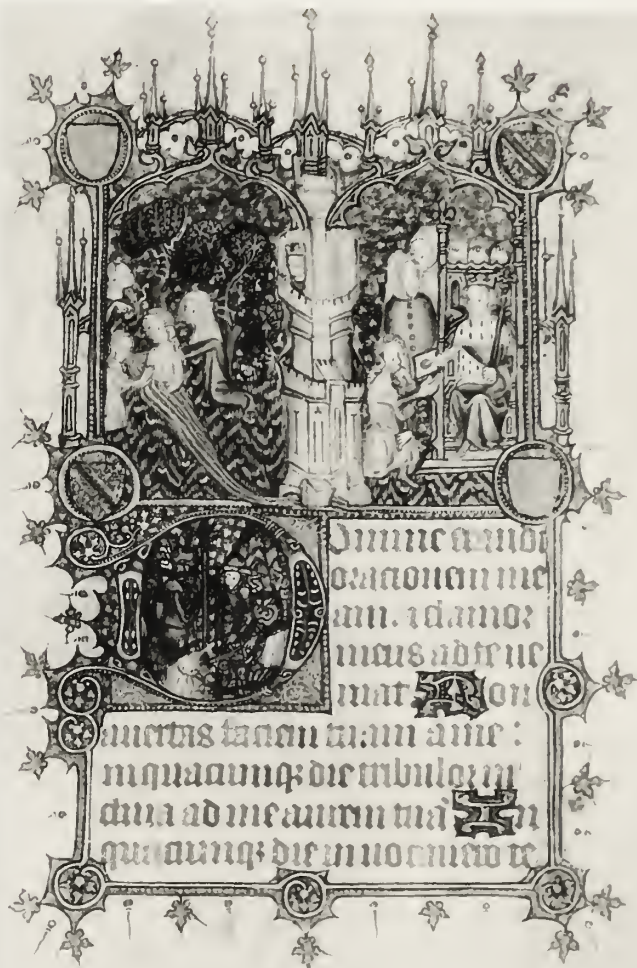 omine exaudi
orationem me
am. 7 clamor
meus ad te ue
niat Non
auertas faciem tuam a me :
in quacumq; die tribulor in
clina ad me aurem tuā In
quacumq; die inuocauero te